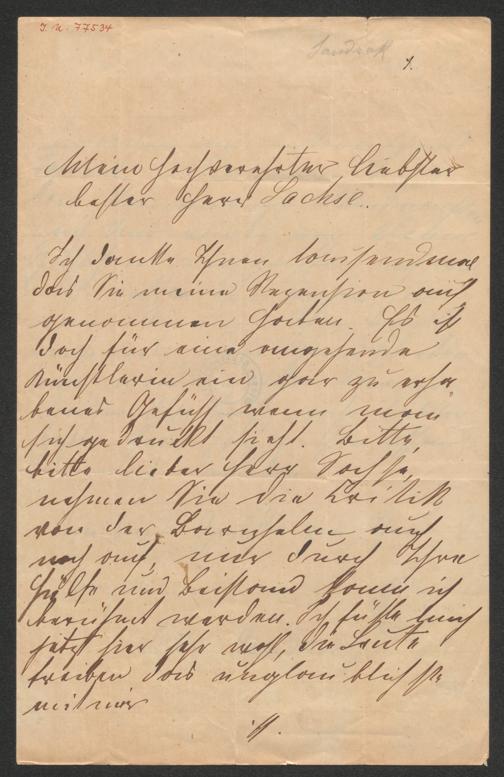 J. N. 77534
Sandrock
1.
Mein hochverehrter liebster
bester Herr Sachse.
Ich danke Ihnen tausendmal
das Sie meine Rezension auf
genommen haben. Es ist
doch für eine angehende
Künstlerin ein gar zu erha
benes Gefühl wenn man
sich gedruckt sieht. Bitte,
bitte lieber Herr Sachse,
nehmen Sie die Critik
von der Barnhelm auch
noch auf, nur durch Ihre
Hülfe und Beistand kann ich
berühmt werden. Ich fühle mich
jetzt hier sehr wohl, die Leute
treiben das unglaublichste
mit mir